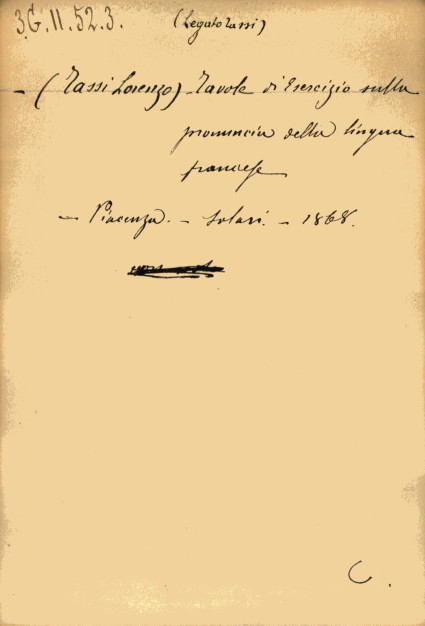 3.G.II.52.3. (Legato Tassi)
– (Tassi Lorenzo) Tavole di Esercizio sulla
pronuncia della lingua
francese
– Piacenza. – Solari. – 1868.
C.